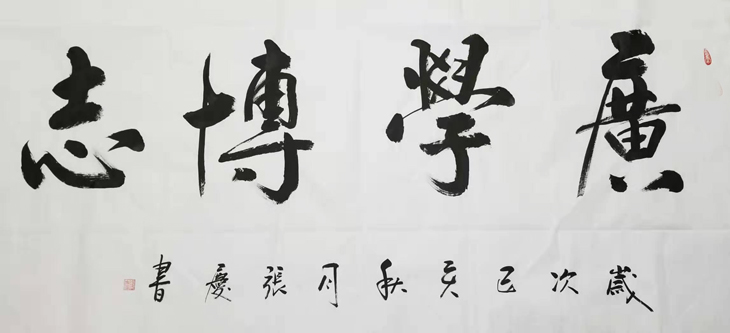 廣學博志
歲次己亥秋月張慶書